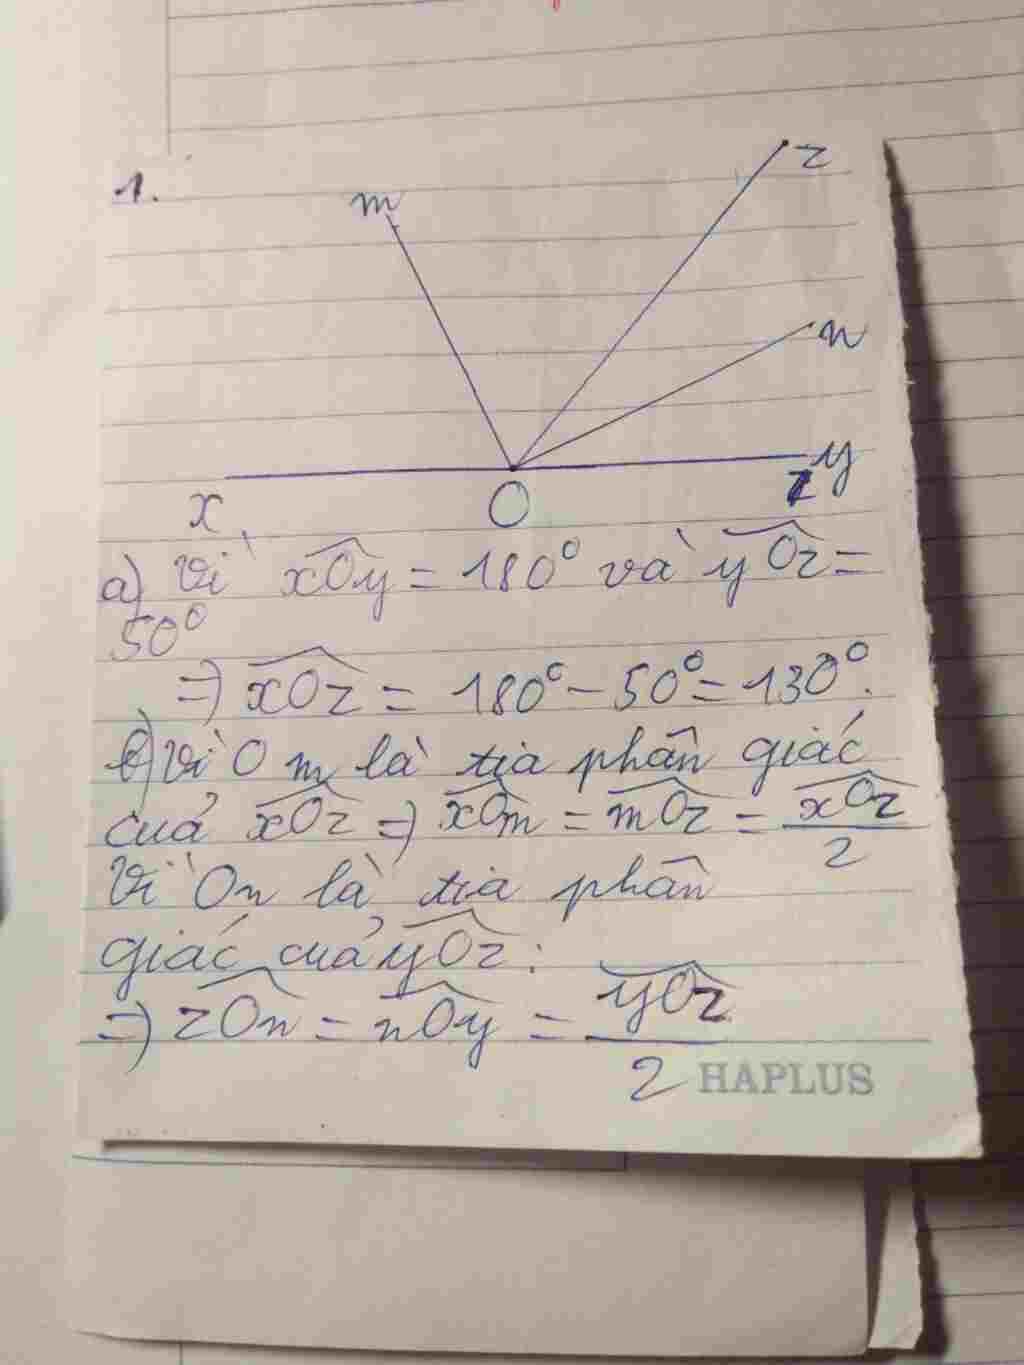 1.
m
z
n
x
O
z
y
a) Vì xOy = 180° và yOz =
50°
=) xOz = 180° - 50° = 130°.
b) Vì Om là tia phân giác
của xOz =) xOm = mOz = xOz
2
Vì On là tia phân
giác của yOz :
=) zOn = nOy = yOz
2 HAPLUS